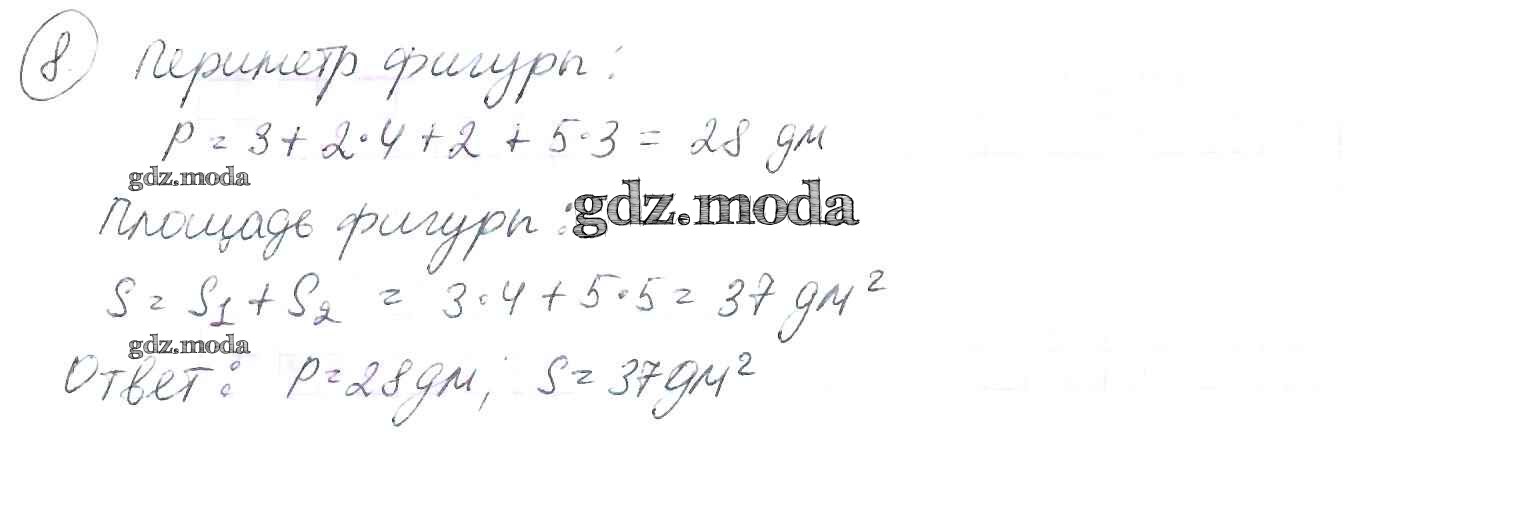 8. Периметр фигуры:
P = 3 + 2·4 + 2 + 5·3 = 28 дм
gdz.moda
Площадь фигуры: gdz.moda
S = S₁ + S₂ = 3·4 + 5·5 = 37 дм²
gdz.moda
Ответ: P = 28 дм; S = 37 дм²